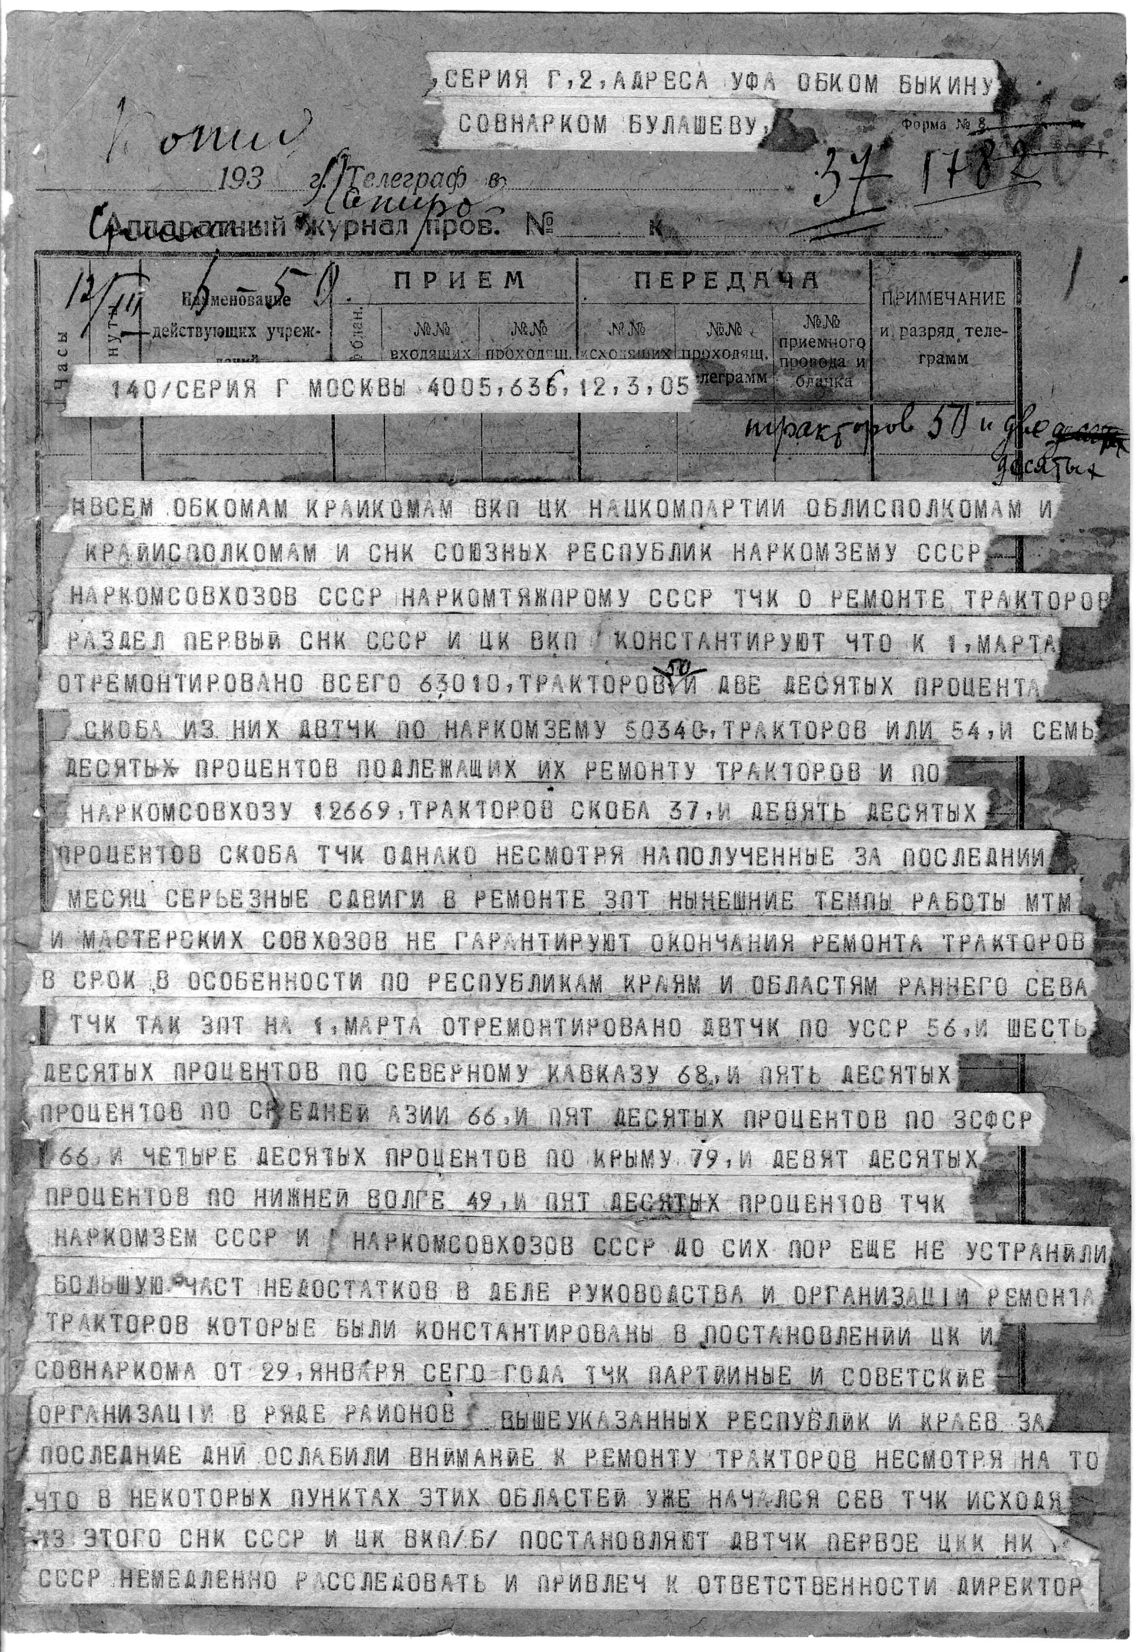 ,СЕРИЯ Г,2,АДРЕСА УФА ОБКОМ БЫКИНУ
СОВНАРКОМ БУЛАШЕВУ,
Форма № 8
Копия
37 1782
193 г. Телеграф в
Аппаратный журнал пров. № К
12/III 5-50
Часы
Наименование
действующих учреж-
ПРИЕМ
ПЕРЕДАЧА
ПРИМЕЧАНИЕ
и разряд теле-
грамм
№№
входящих
№№
проходящ.
№№
исходящих
№№
проходящ.
№№
приемного
провода и
бланка
140/СЕРИЯ Г МОСКВЫ 4005,636,12,3,05
тракторов 50 и две
десятых
ВСЕМ ОБКОМАМ КРАИКОМАМ ВКП ЦК НАЦКОМПАРТИИ ОБЛИСПОЛКОМАМ И
КРАЙИСПОЛКОМАМ И СНК СОЮЗНЫХ РЕСПУБЛИК НАРКОМЗЕМУ СССР
НАРКОМСОВХОЗОВ СССР НАРКОМТЯЖПРОМУ СССР ТЧК О РЕМОНТЕ ТРАКТОРОВ
РАЗДЕЛ ПЕРВЫЙ СНК СССР И ЦК ВКП КОНСТАНТИРУЮТ ЧТО К 1,МАРТА
50
ОТРЕМОНТИРОВАНО ВСЕГО 63010,ТРАКТОРОВ И ДВЕ ДЕСЯТЫХ ПРОЦЕНТА
СКОБА ИЗ НИХ ДВТЧК ПО НАРКОМЗЕМУ 50340,ТРАКТОРОВ ИЛИ 54,И СЕМЬ
ДЕСЯТЫХ ПРОЦЕНТОВ ПОДЛЕЖАЩИХ ИХ РЕМОНТУ ТРАКТОРОВ И ПО
НАРКОМСОВХОЗУ 12669,ТРАКТОРОВ СКОБА 37,И ДЕВЯТЬ ДЕСЯТЫХ
ПРОЦЕНТОВ СКОБА ТЧК ОДНАКО НЕСМОТРЯ НАПОЛУЧЕННЫЕ ЗА ПОСЛЕДНИИ
МЕСЯЦ СЕРЬЕЗНЫЕ СДВИГИ В РЕМОНТЕ ЗПТ НЫНЕШНИЕ ТЕМПЫ РАБОТЫ МТМ
И МАСТЕРСКИХ СОВХОЗОВ НЕ ГАРАНТИРУЮТ ОКОНЧАНИЯ РЕМОНТА ТРАКТОРОВ
В СРОК В ОСОБЕННОСТИ ПО РЕСПУБЛИКАМ КРАЯМ И ОБЛАСТЯМ РАННЕГО СЕВА
ТЧК ТАК ЗПТ НА 1,МАРТА ОТРЕМОНТИРОВАНО ДВТЧК ПО УССР 56,И ШЕСТЬ
ДЕСЯТЫХ ПРОЦЕНТОВ ПО СЕВЕРНОМУ КАВКАЗУ 68,И ПЯТЬ ДЕСЯТЫХ
ПРОЦЕНТОВ ПО СРЕДНЕЙ АЗИИ 66,И ПЯТ ДЕСЯТЫХ ПРОЦЕНТОВ ПО ЗСФСР
66,И ЧЕТЫРЕ ДЕСЯТЫХ ПРОЦЕНТОВ ПО КРЫМУ 79,И ДЕВЯТ ДЕСЯТЫХ
ПРОЦЕНТОВ ПО НИЖНЕЙ ВОЛГЕ 49,И ПЯТ ДЕСЯТЫХ ПРОЦЕНТОВ ТЧК
НАРКОМЗЕМ СССР И НАРКОМСОВХОЗОВ СССР ДО СИХ ПОР ЕЩЕ НЕ УСТРАНИЛИ
БОЛЬШУЮ ЧАСТ НЕДОСТАТКОВ В ДЕЛЕ РУКОВОДСТВА И ОРГАНИЗАЦIИ РЕМОНТА
ТРАКТОРОВ КОТОРЫЕ БЫЛИ КОНСТАНТИРОВАНЫ В ПОСТАНОВЛЕНИИ ЦК И
СОВНАРКОМА ОТ 29,ЯНВАРЯ СЕГО ГОДА ТЧК ПАРТИИНЫЕ И СОВЕТСКИЕ
ОРГАНИЗАЦIИ В РЯДЕ РАИОНОВ ВЫШЕУКАЗАННЫХ РЕСПУБЛИК И КРАЕВ ЗА
ПОСЛЕДНИЕ ДНИ ОСЛАБИЛИ ВНИМАНИЕ К РЕМОНТУ ТРАКТОРОВ НЕСМОТРЯ НА ТО
ЧТО В НЕКОТОРЫХ ПУНКТАХ ЭТИХ ОБЛАСТЕЙ УЖЕ НАЧАЛСЯ СЕВ ТЧК ИСХОДЯ
ИЗ ЭТОГО СНК СССР И ЦК ВКП/Б/ ПОСТАНОВЛЯЮТ ДВТЧК ПЕРВОЕ ЦКК НК
СССР НЕМЕДЛЕННО РАССЛЕДОВАТЬ И ПРИВЛЕЧ К ОТВЕТСТВЕННОСТИ ДИРЕКТОР